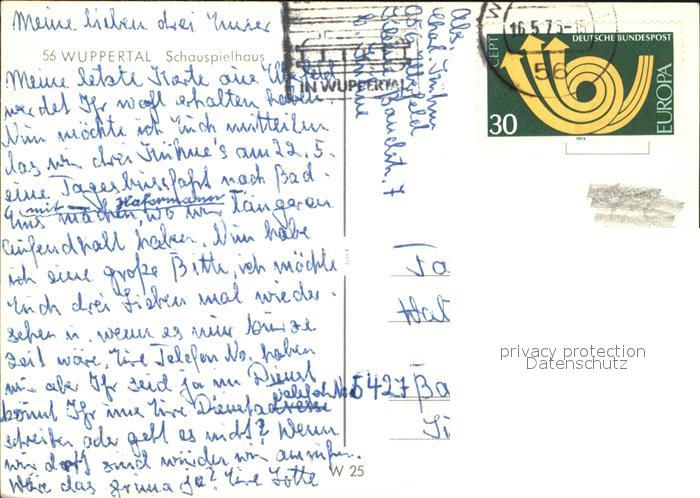 Meine lieben drei
56 WUPPERTAL Schauspielhaus
Meine letzte Karte aus
werdet Ihr wohl erhalten haben
Nun möchte ich Euch mitteilen
das wir drei Kühne's am 22.5.
eine Tagesbusfahrt nach Bad-
mit Hafermann
Ems machen, wo wir längeren
Aufendhalt haben. Nun habe
ich eine große Bitte, ich möchte
Euch drei Lieben mal wieder-
sehen u. wenn es nur kurze
Zeit wäre, Eure Telefon No. haben
wir aber Ihr seid ja im Dienst
könnt Ihr uns Eure Dienst Telefon No
schreiben oder geht es nicht? Wenn
wir dort sind würden wir anrufen.
Wäre das prima ja? Eure Lotte
W 25
IN WUPPERTAL
Abs.
Kühne
56
16.5.73-15
56
CEPT
DEUTSCHE BUNDESPOST
EUROPA
30
1973
Fa
5427 Ba
privacy protection
Datenschutz